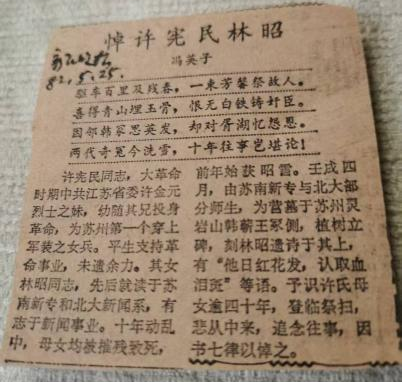 悼许宪民林昭
冯英子
新民晚报
82.5.25.
驱车百里及残春，一束芳馨祭故人。
喜得青山埋玉骨，恨无白铁铸奸臣。
因邻韩冢思英发，却对胥湖忆怨恩。
两代奇冤今洗雪，十年往事岂堪论！
许宪民同志，大革命
时期中共江苏省委许金元
烈士之妹，幼随其兄投身
革命，为苏州第一个穿上
军装之女兵。平生支持革
命事业，未遗余力。其女
林昭同志，先后就读于苏
南新专和北大新闻系，有
志于新闻事业。十年动乱
中，母女均被摧残致死，
前年始获昭雪。壬戌四
月，由苏南新专与北大部
分师生，为营墓于苏州灵
岩山韩蕲王冢侧，植树立
碑，刻林昭遗诗于其上，
有“他日红花发，认取血
泪斑”等语。予识许氏母
女逾四十年，登临祭扫，
悲从中来，追念往事，因
书七律以悼之。